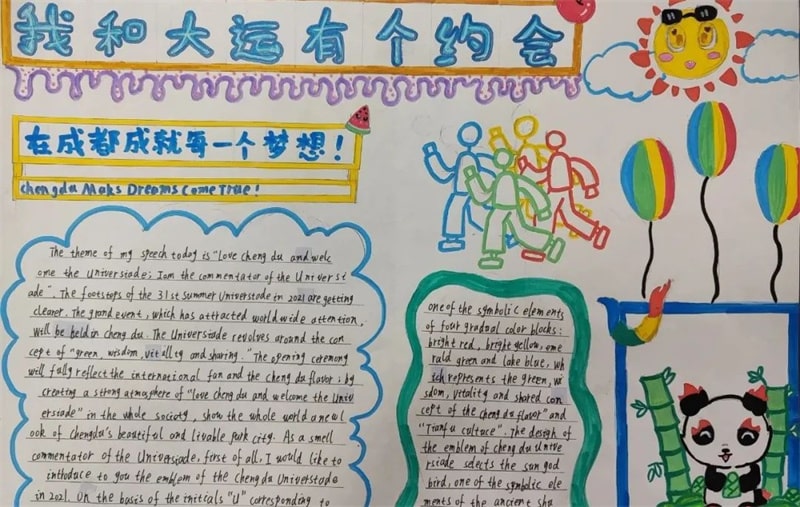 我和大运有个约会
在成都成就每一个梦想！
chengdu Maks Dreams Come True!
The theme of my speech today is "love cheng du and welc
ome the Universiade; Iam the commentator of the Universi
ade". The footsteps of the 31st summer Universiade in 2021 are getting
clearer. The grand event, which has attracted worldwide attention,
will be held in cheng du. The Universiade revolves around the con
cept of "green, wisdom, vitality and sharing." The opening ceremony
will fully reflect the international fan and the chengdu flavor; by
creating a strong atmosphere of "love cheng du and welcome the Univ
ersiade" in the whole society, show the whole world a new l
ook of Chengdu's beautiful and livable park city. As a smell
commentator of the Universiade, first of all, I would like to
inthoduce to you the emblem of the Chengdu Universtade
in 2021. On the basis of the initials "U" corresponding to
one of the symbolic elements
of four gradual color blocks:
bright red, bright yellow, eme
rald green and lake blue, wh
ich ropresents the green, wi
sdom, vitality and shated con
cept of the chengdu flavor" and
"Tianfu cultuce". The desigh of
the emblem of chengdu Unive
rsiade selects the sun god
bird, one of the symbolic ele
ments of the ancient shu